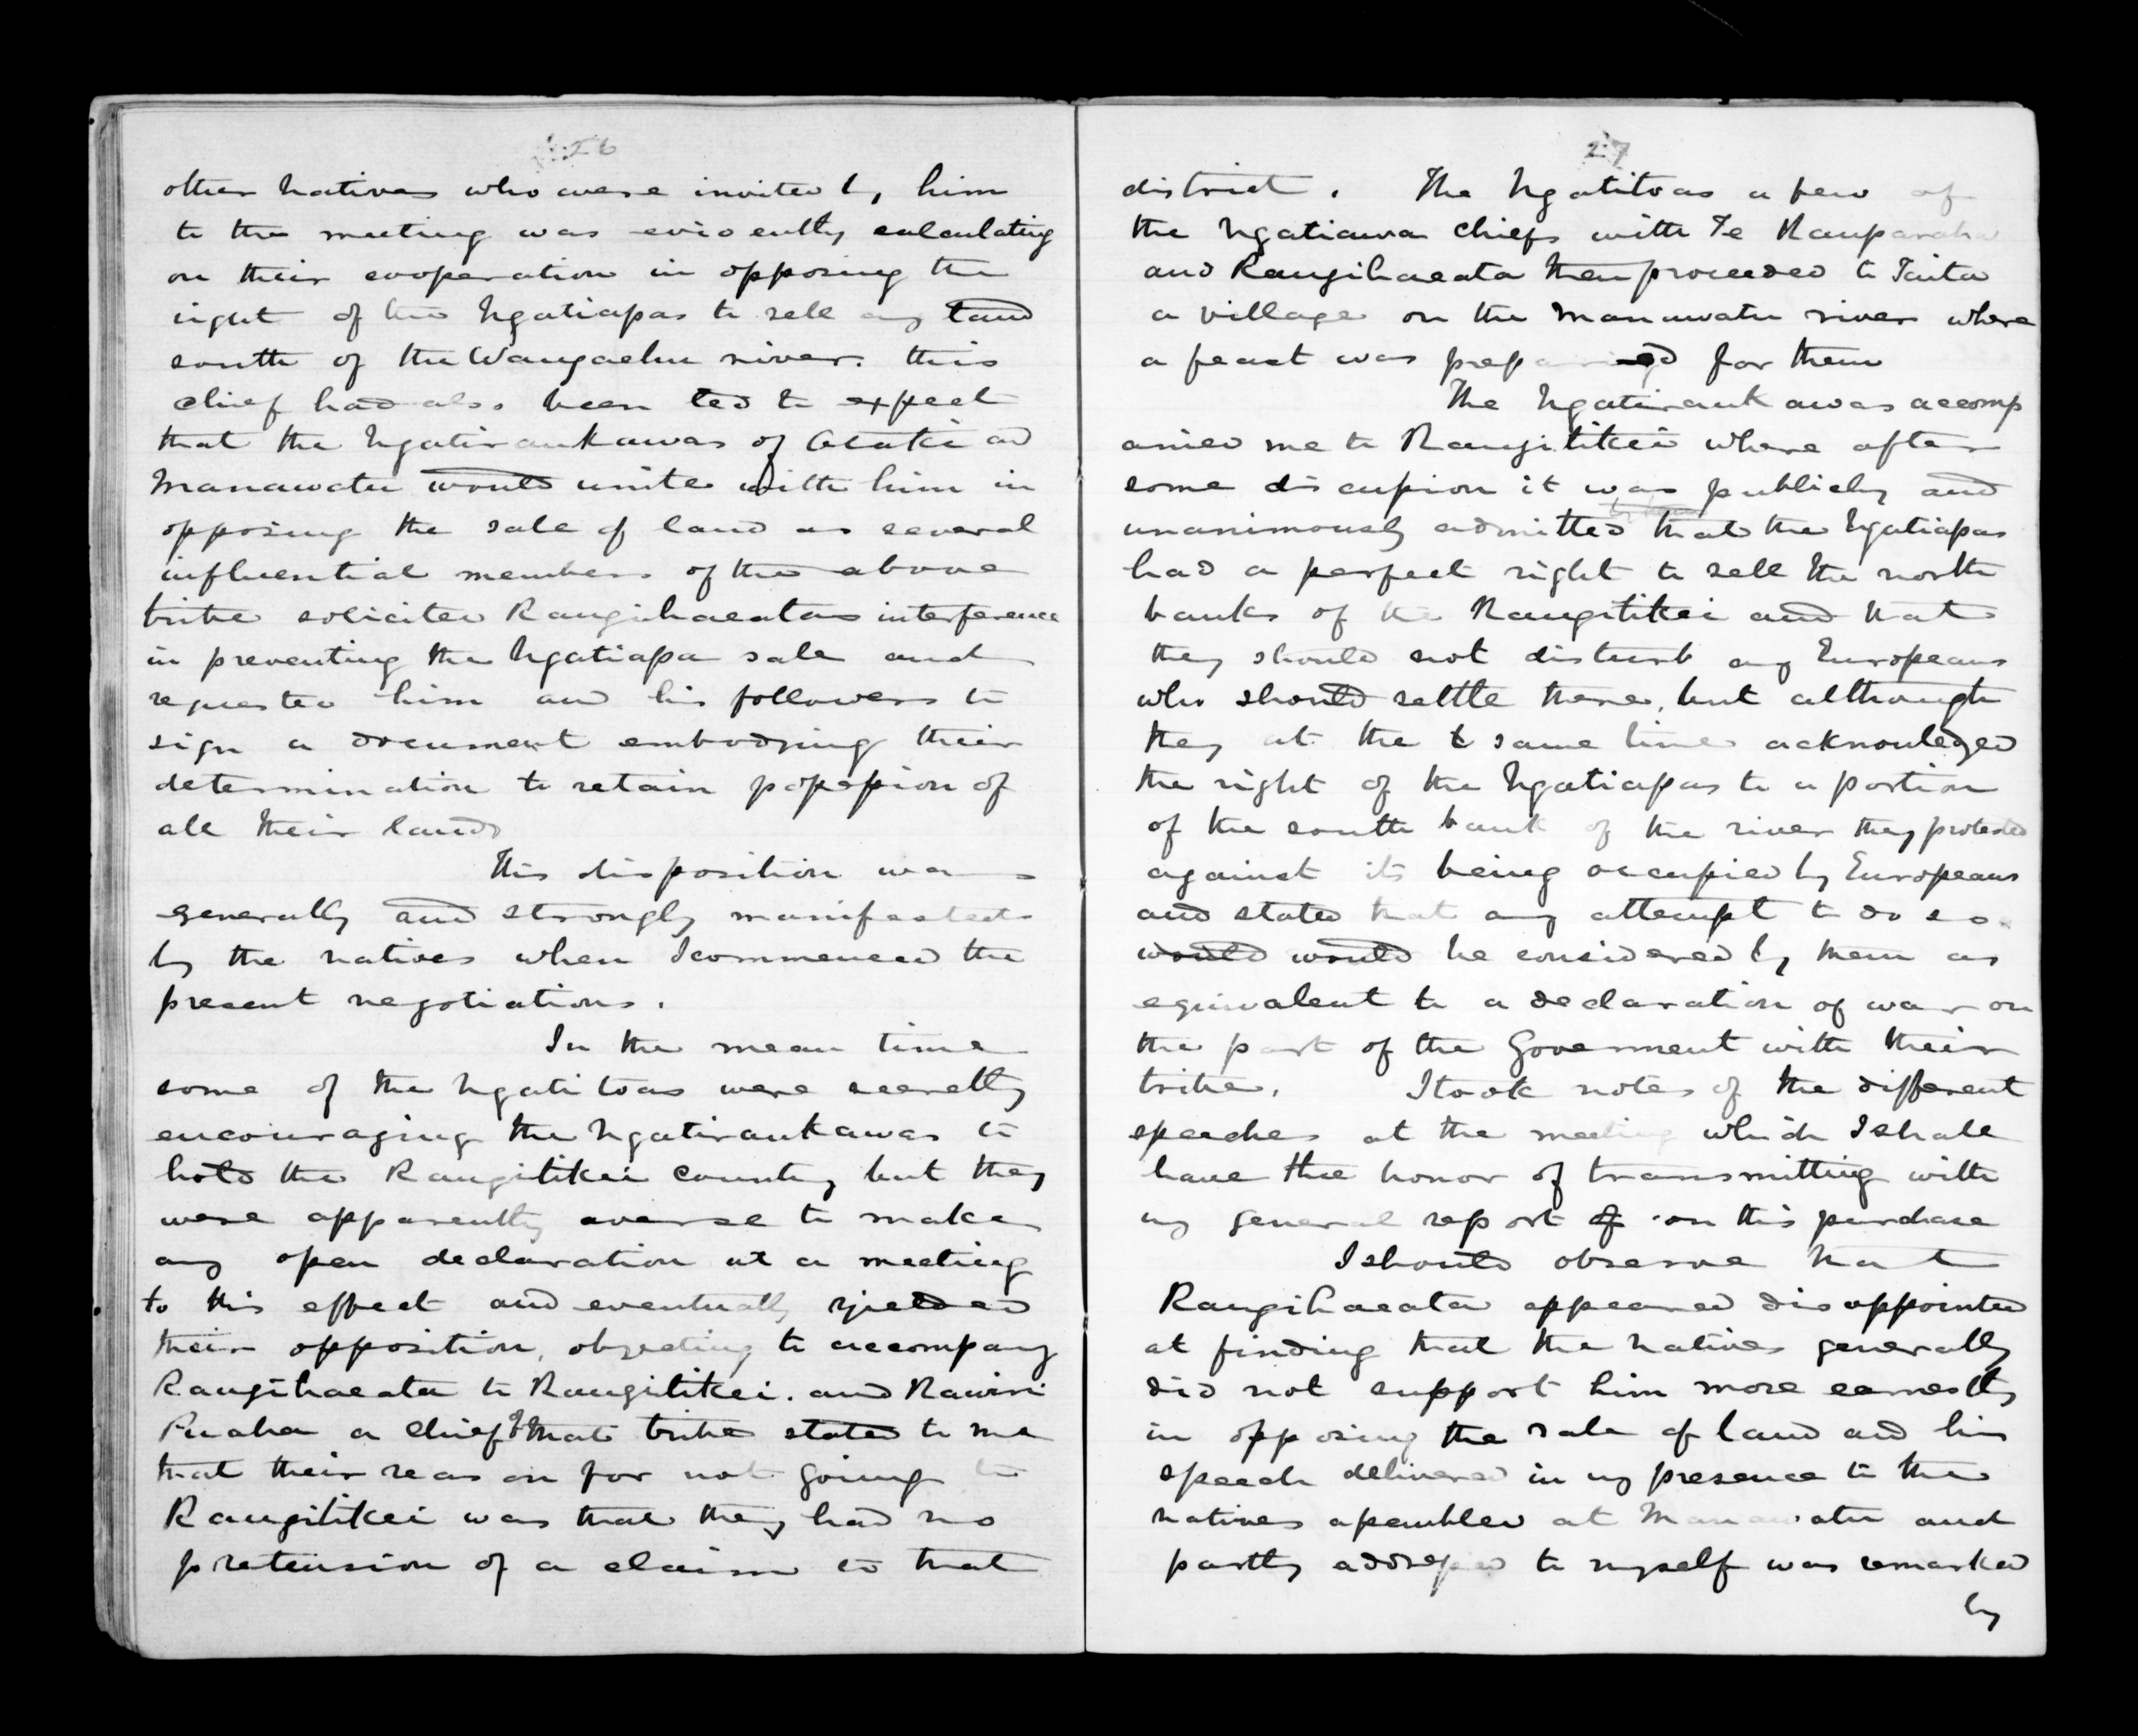 26
other natives who were invited by him
to the meeting was evidently calculating
on their cooperation in opposing the
right of the Ngatiapas to sell any land
south of the Wangaehu river. this
chief had also been led to expect
that the Ngatiraukawas of Otaki and
Manawatu would unite with him in
opposing the sale of land as several
influential members of the above
tribe solicited Rangihaeatas interference
in preventing the Ngatiapa sale and
requested him and his followers to
sign a document embodying their
determination to retain possession of
all their lands
This disposition was
generally and strongly manifested
by the natives when I commenced the
present negotiations.
In the mean time
some of the Ngatitoas were secretly
encouraging the Ngatiraukawas to
hold the Rangitikei country but they
were apparently averse to make
any open declaration at a meeting
to this effect and eventually yielded
their opposition, objecting to accompany
Rangihaeata to Rangitikei. and Rawiri
Puaha a chief of that tribe stated to me
that their reason for not going to
Rangitikei was that they had no
pretension of a claim to that
27
district. The Ngatitoas a few of
the Ngatiawa chiefs with Te Rauparaha
and Rangihaeata then proceeded to Taita
a village on the Manawatu river where
a feast was prepared for them
The Ngatiraukawas accomp
anied me to Rangitikei where after
some discussion it was publicly and
unanimously admitted that the Ngatiapas
had a perfect right to sell the north
banks of the Rangitikei and that
they should not disturb any Europeans
who should settle there, but although
they at the t same time acknowledged
the right of the Ngatiapas to a portion
of the south bank of the river they protested
against its being occupied by Europeans
and stated that any attempt to do so
would would be considered by them as
equivalent to a declaration of war on
the part of the Goverment with their
tribe. I took notes of the different
speeches at the meeting which I shall
have the honor of transmitting with
my general report of on this purchase
I should observe that
Rangihaeata appeared disappointed
at finding that the natives generally
did not support him more earnestly
in opposing the sale of land and his
speech delivered in my presence to the
natives assembled at Manawatu and
partly addressed to myself was remarked
by